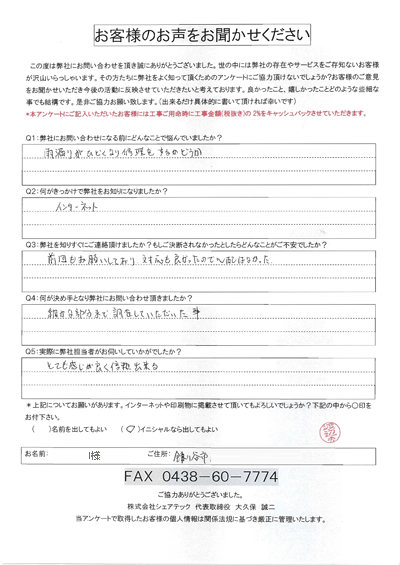 お客様のお声をお聞かせください
この度は弊社にお問い合わせを頂き誠にありがとうございました。世の中には弊社の存在やサービスをご存知ないお客様
が沢山いらっしゃいます。その方たちに弊社をよく知って頂くためのアンケートにご協力頂けないでしょうか？お客様のご意見
をお聞かせいただき今後の活動に反映させていただきたいと考えております。良かったこと、嬉しかったことどのような些細な
事でも結構です。是非ご協力お願い致します。（出来るだけ具体的に書いて頂ければ幸いです）
*本アンケートにご記入いただいたお客様には工事ご用命時に工事金額(税抜き)の 2%をキャッシュバックさせていただきます。
Q1：弊社にお問い合わせになる前にどんなことで悩んでいましたか？
雨漏りがひどくなり修理をするかどうか
Q2：何がきっかけで弊社をお知りになりましたか？
インターネット
Q3：弊社を知りすぐにご連絡頂けましたか？もしご決断されなかったとしたらどんなことがご不安でしたか？
前回もお願いしており 対応も良かったので心配はなかった
Q4：何が決め手となり弊社にお問い合わせ頂きましたか？
細かな部分まで調査していただいた
Q5：実際に弊社担当者がお伺いしていかがでしたか？
とても感じが良く信頼出来る
＊上記についてお願いがあります。インターネットや印刷物に掲載させて頂いてもよろしいでしょうか？下記の中から〇印を
お付下さい。
（　）名前を出してもよい　（〇）イニシャルなら出してもよい
お名前： I様 ご住所： 鎌ヶ谷市
FAX 0438-60-7774
ご協力ありがとうございました。
株式会社シェアテック 代表取締役 大久保 誠二
当アンケートで取得したお客様の個人情報は関係法規に基づき厳正に管理いたします。